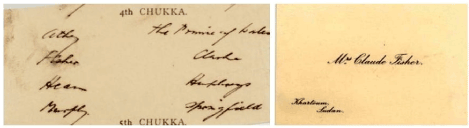 4th CHUKKA.
Atley the Prince of Wales
Fisher Clarke
Hearn Humphreys
Murphy Springfield
5th CHUKKA.
Mrs Claude Fisher.
Khartoum,
Sudan.